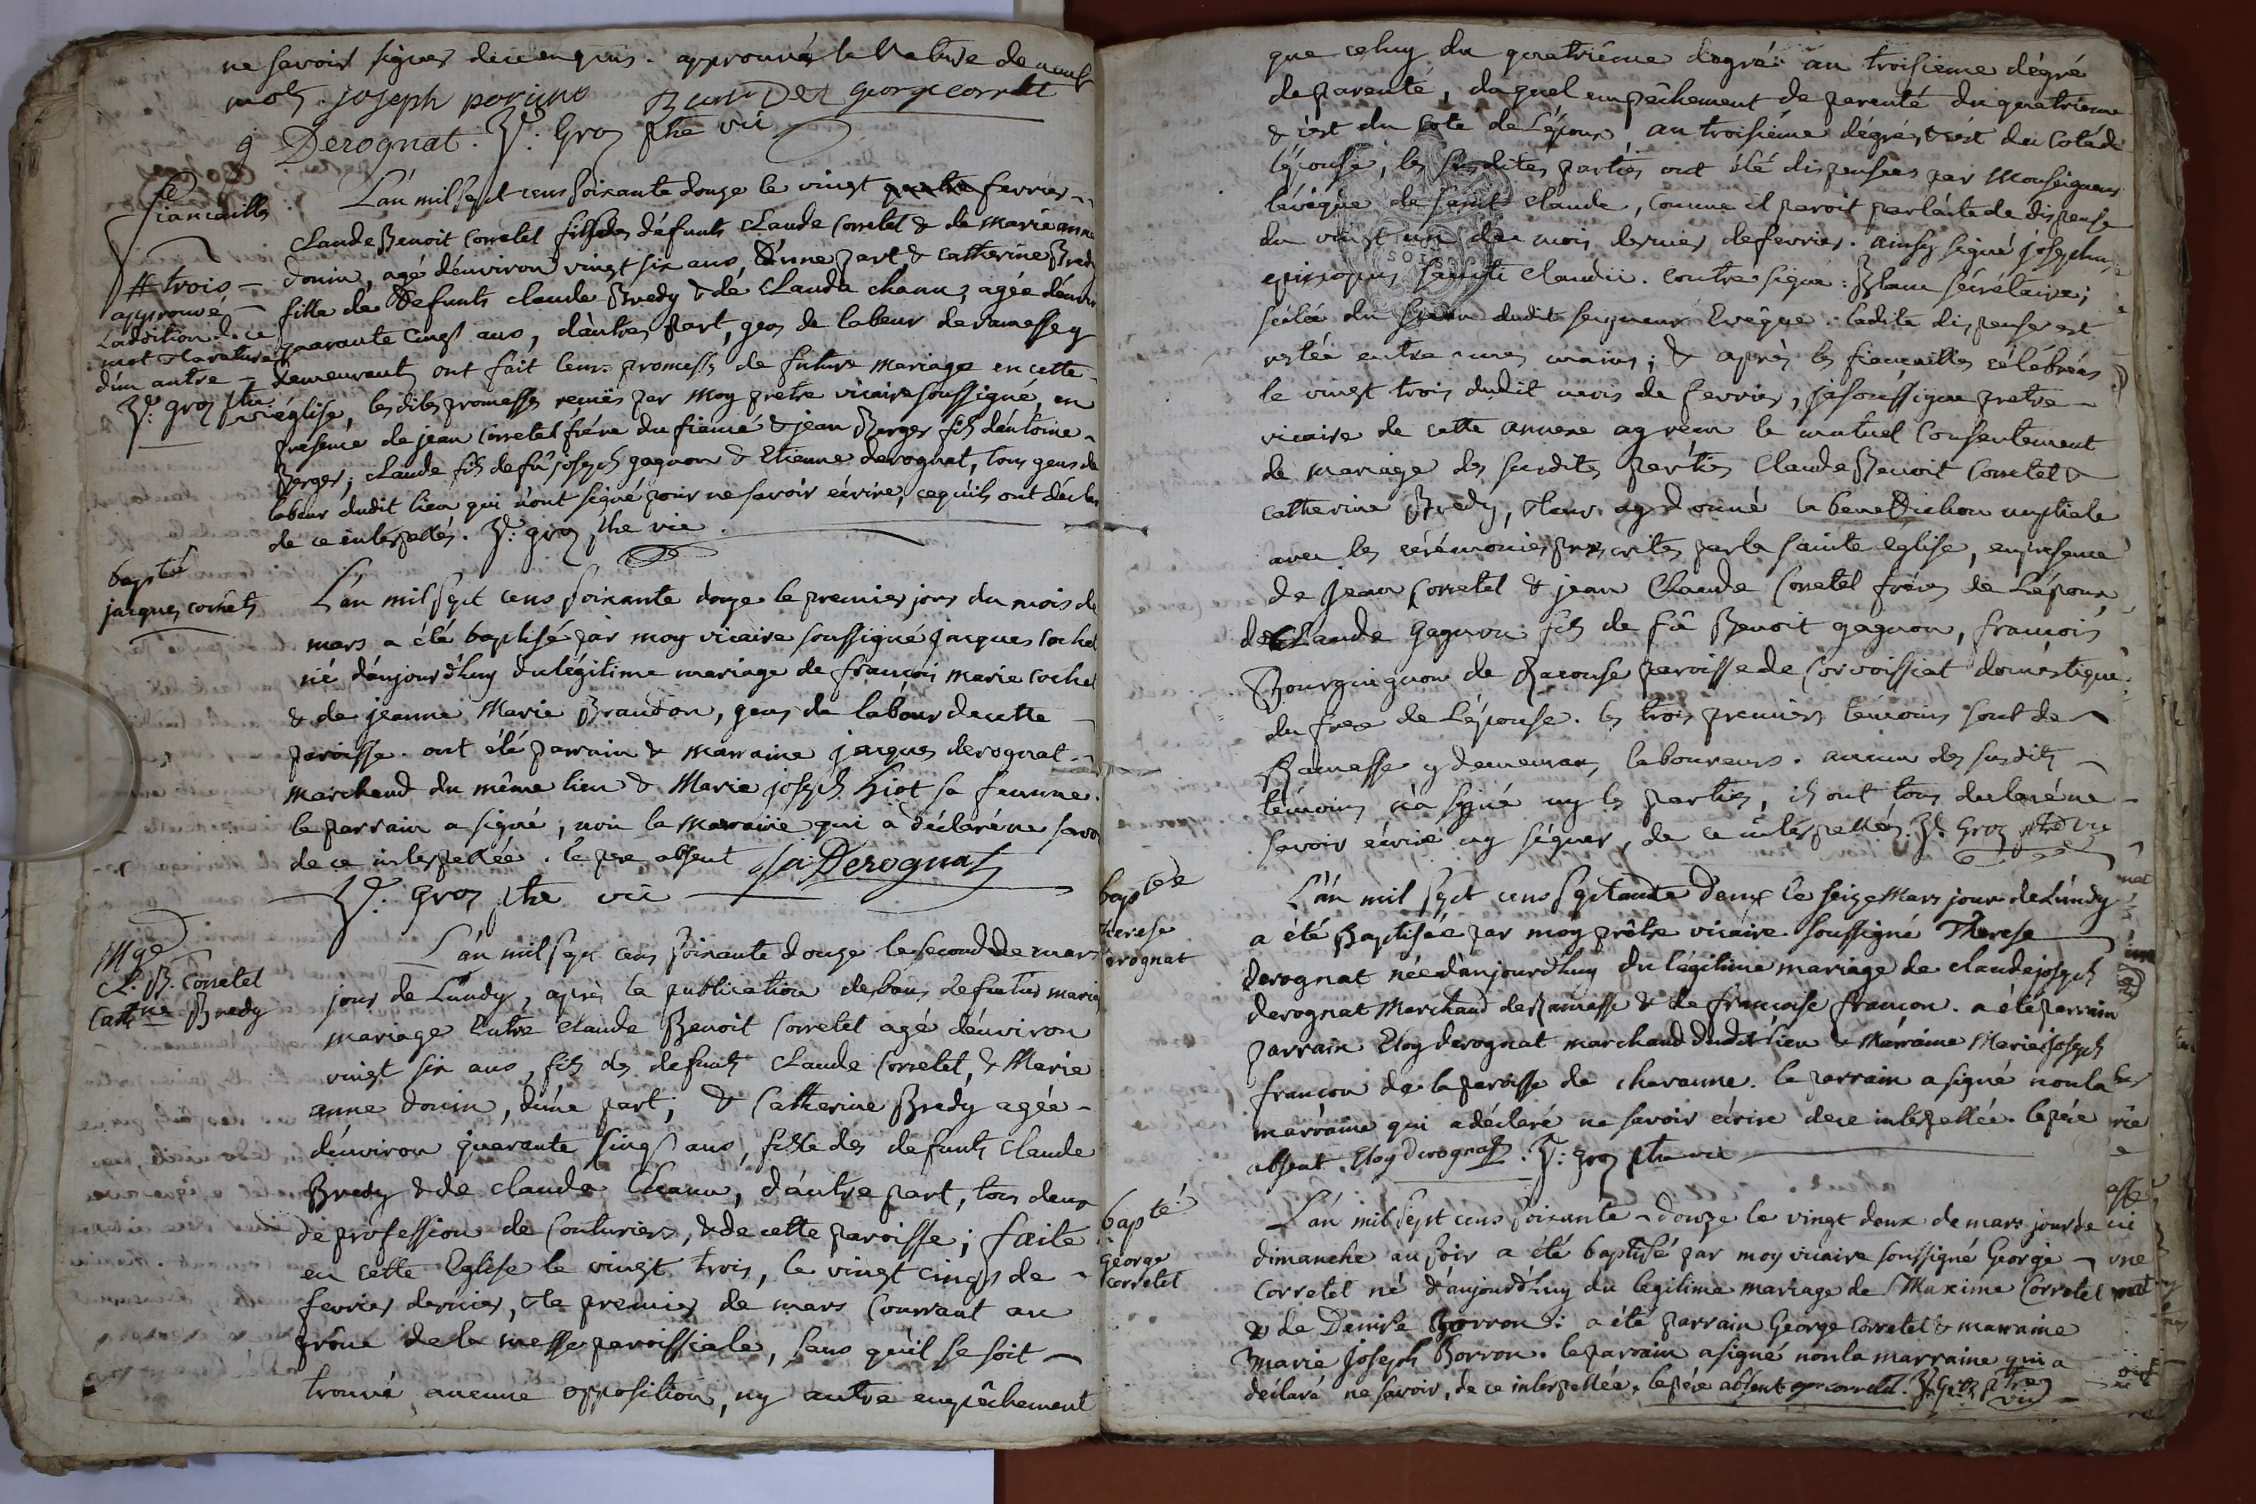 ne savoir signer de ce enquis. approuvés la rature de neuf
mots. joseph poriuno george corretet
Derognat. J. Groz ptre vic
fiançailles
L'an mil sept cens soixante douze le vingt quatre fevrier
Claude Benoit Corretet fils des défunts Claude Corretet & de Marie anne
# trois
donin, agé d'environ vingt six ans, d'une part & Catherine Bredy
approuvé
fille de defunts claude Bredy & de Clauda chanu, agée d'environ
L'addition de ce
quarante cinq ans, d'autre part, gens de labeur de ramasse y
mot & la rature
d'un autre
demeurants ont fait leurs promesses de future mariage en cette
J. groz ptre vic
église, lesdites promesses reçues par moy pretre vicaire soussigné, en
presence de jean Corretet frére du fiancé & jean Berger fils d'antoine
Berger; claude fils de fû joseph gagnon & Etienne derognat, tous gens de
labeur dudit lieu qui n'ont signé pour ne savoir écrire, ce qu'ils ont déclaré
de ce interpellés. J. groz ptre vic.
bapté
jacques cochet
L'an mil sept cens soixante douze le premier jour du mois de
mars a été baptisé par moy vicaire soussigné jacques cochet
né d'aujourd'huy du légitime mariage de françois marie cochet
& de jeanne Marie Brandon, gens de labour de cette
paroisse. ont été parrain & marraine jacques derognat
marchand du même lieu & Marie joseph hiot sa femme.
le parrain a signé, non la marraine qui a déclaré ne savoir
de ce interpellée. le pere absent ja: Derognat
J. Groz ptre vic
Mge
Cl. B. Corretet
Cathne Bredy
L'an mil sept cens soixante douze le second de mars
jour de Lundy, après la publication des bans de futur mariage
mariage entre Claude Benoit Corretet agé d'environ
vingt six ans, fils des defunts Claude Corretet, & Marie
anne donin, d'une part; & Catherine Bredy agée
d'environ quarante cinq ans, fille des defunts Claude
Bredy & de clauda Chanu, d'autre part, tous deux
de profession de couturiers, & de cette paroisse; faite
en cette Eglise le vingt trois, le vingt cinq de
fevrier dernier, & le premier de mars courrant au
prône de la messe paroissiale, sans qu'il se soit
trouvé aucune opposition, ny autre empêchement
que celuy du quatriéme dégré au troisieme dégré
de parenté, duquel empêchement de parenté du quatriéme
& c'est du coté de L'époux au troisiéme dégré, & c'est du coté de
l'épouse, les susdites parties ont été dispensées par Monseigneur
l'évêque de saint Claude, comme il paroit par l'acte de dispense
du vingt un du mois dernier de fevrier. ainsy signé josephus
episcopus sancti Claudii. contre signé: Blanc sécrétaire;
scélée du sceau dudit seigneur Evêque. ladite dispense est
restée entre mes mains; & après les fiançailles célébrées
le vingt trois dudit mois de fevrier, je soussigné pretre
vicaire de cette annexe ay reçu le mutuel consentement
de mariage des susdites parties Claude Benoit Corretet &
catherine Bredy, & leur ay donné la benediction nuptiale
avec les cérémonies prescrites par la sainte eglise, en presence
de Jean Corretet & jean Claude Corretet fréres de L'époux,
de Claude Gagnon fils de fû Benoit gagnon, françois
Bourguignon de Racouse paroisse de Corvoissiat doméstique
du frere de L'épouse. les trois premiers temoins sont de
Ramasse y demeurans laboureurs. aucun des susdits
témoins n'a signé ny les parties, ils ont tous declaré ne
savoir écrire ny signer, de ce interpellés. J. Groz ptre vic
baptée
Therese
derognat
L'an mil sept cens septante deux le seize mars jour de Lundy
a été Baptisée par moy prêtre vicaire soussigné Therese
derognat née d'aujourd'huy du légitime mariage de claude joseph
derognat marchand de Ramasse & de françoise françon. a été parrain
parrain Eloy derognat marchand dudit lieu & marraine Marie joseph
françon de la paroisse de chavanne. le parrain a signé non la
marraine qui a déclaré ne savoir écrire de ce interpellée. le pére
absent. Eloy Derognat. J. groz ptre vic
bapté
George
Corretet
L'an mil sept cens soixante-douze le vingt deux de mars jour de
dimanche au soir a été baptisé par moy vicaire soussigné George
Corretet né d'aujourd'huy du legitime mariage de Maxime Corretet
& de Denise Borron. a été parrain George Corretet & marraine
Marie Joseph Borron. le parrain a signé non la marraine qui a
déclaré ne savoir, de ce interpellée. le pére absent george corretet. J. Groz ptre
vic